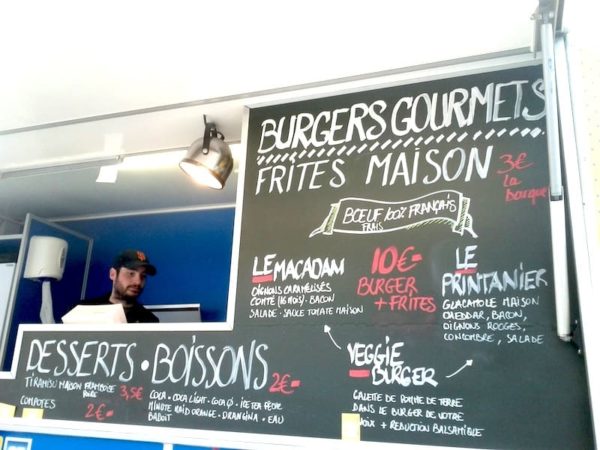 BURGERS GOURMETS
FRITES MAISON
3€
La
Barquette
BŒUF 100% FRANÇAIS
FRAIS
LE MACADAM
OIGNONS CARAMÉLISÉS
COMTÉ (16 MOIS), BACON
SALADE - SAUCE TOMATE MAISON
10€
BURGER
+ FRITES
LE
PRINTANIER
GUACAMOLE MAISON
CHEDDAR, BACON,
OIGNONS ROUGES,
CONCOMBRE, SALADE
VEGGIE
BURGER
GALETTE DE POMME DE TERRE
DANS LE BURGER DE VOTRE
CHOIX + REDUCTION BALSAMIQUE
DESSERTS • BOISSONS
2€
TIRAMISU MAISON FRAMBOISE
3,5€
COMPOTES
2€
COLA - COCA LIGHT - COCA
ICE TEA PÊCHE
MINUTE MAID ORANGE - ORANGINA - EAU
BADOIT